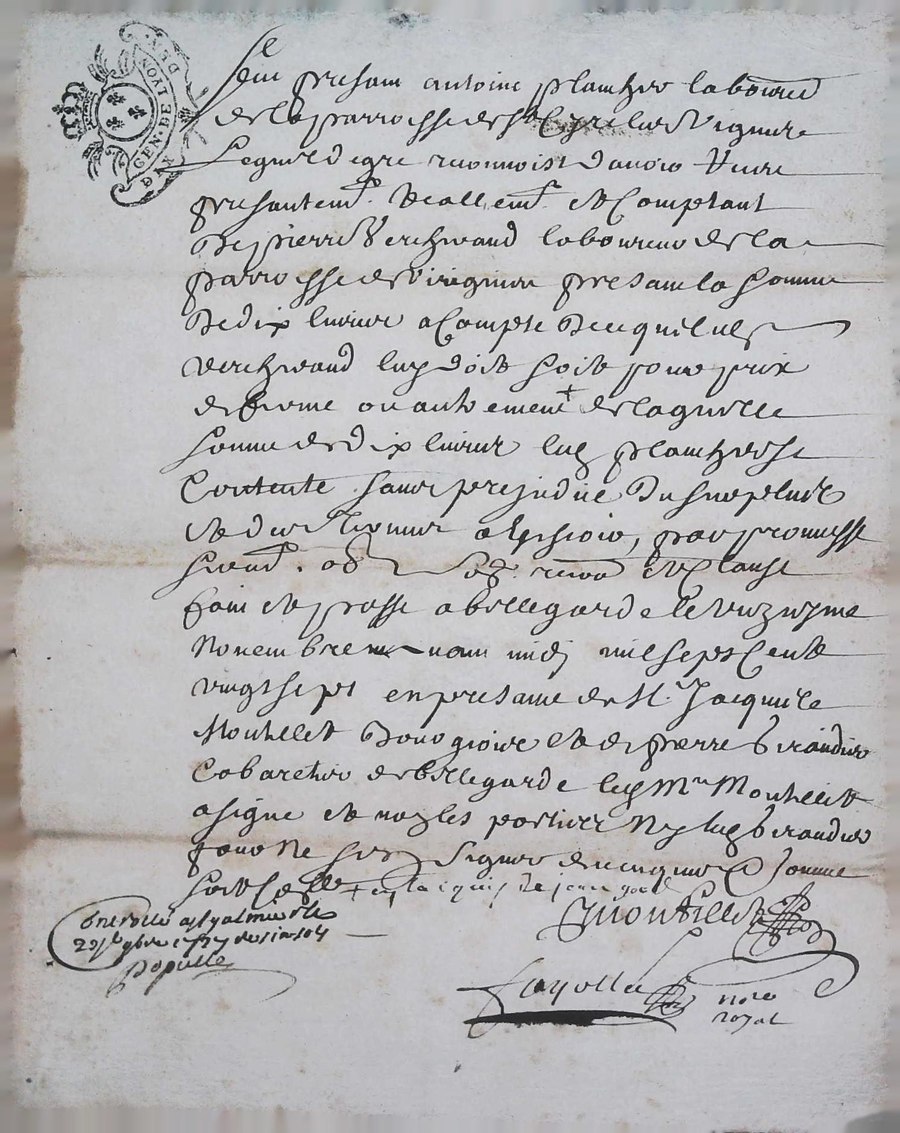 GEN · DE · LYON
fut presant antoine planchier laboureur
de la parroisse de St Cyr les Vignes
Lequel de gre reconnoist d'avoir
presantemt. reallemt. et Comptant
De pierre Verchirand laboureur de la
parroisse de presant la somme
De dix livres a Compte De ce que ledt
verchirand luy doit soit pour prix
de ferme ou autrement de laquelle
somme de dix livres led planchier se
Contente sans prejudice Du surplus
et d'actionner a l'advenir, par promesse
sermt. obon renon et Clause
fait et passe a bellegarde le unziesme
novembre avant midi mil sept Cent
vingt sept en presance de Mr. Jacque
Montellet Bourgeois et de pierre Girandier
Cabaretier de bellegarde led Mre Montellet
a signe et non les parties Ny led Girandier
pour Ne scavoir signer de ce enquis et somme
Montellet
Controlle a St Galmier le
20 9bre 1727 sols
Populle
Fayolle
nore
royal